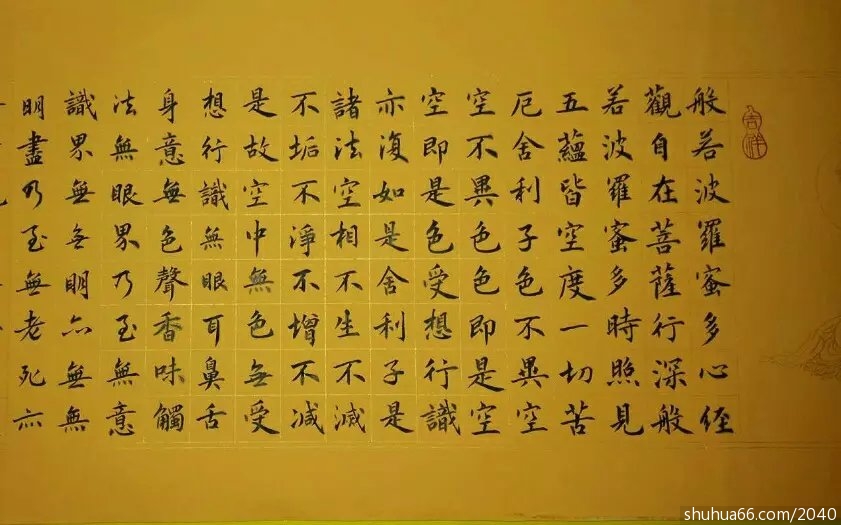 吉祥
般若波羅蜜多心經
觀自在菩薩行深般
若波羅蜜多時照見
五蘊皆空度一切苦
厄舍利子色不異空
空不異色色即是空
空即是色受想行識
亦復如是舍利子是
諸法空相不生不滅
不垢不淨不增不減
是故空中無色無受
想行識無眼耳鼻舌
身意無色聲香味觸
法無眼界乃至無意
識界無無明亦無無
明盡乃至無老死亦
shuhua66.com/2040